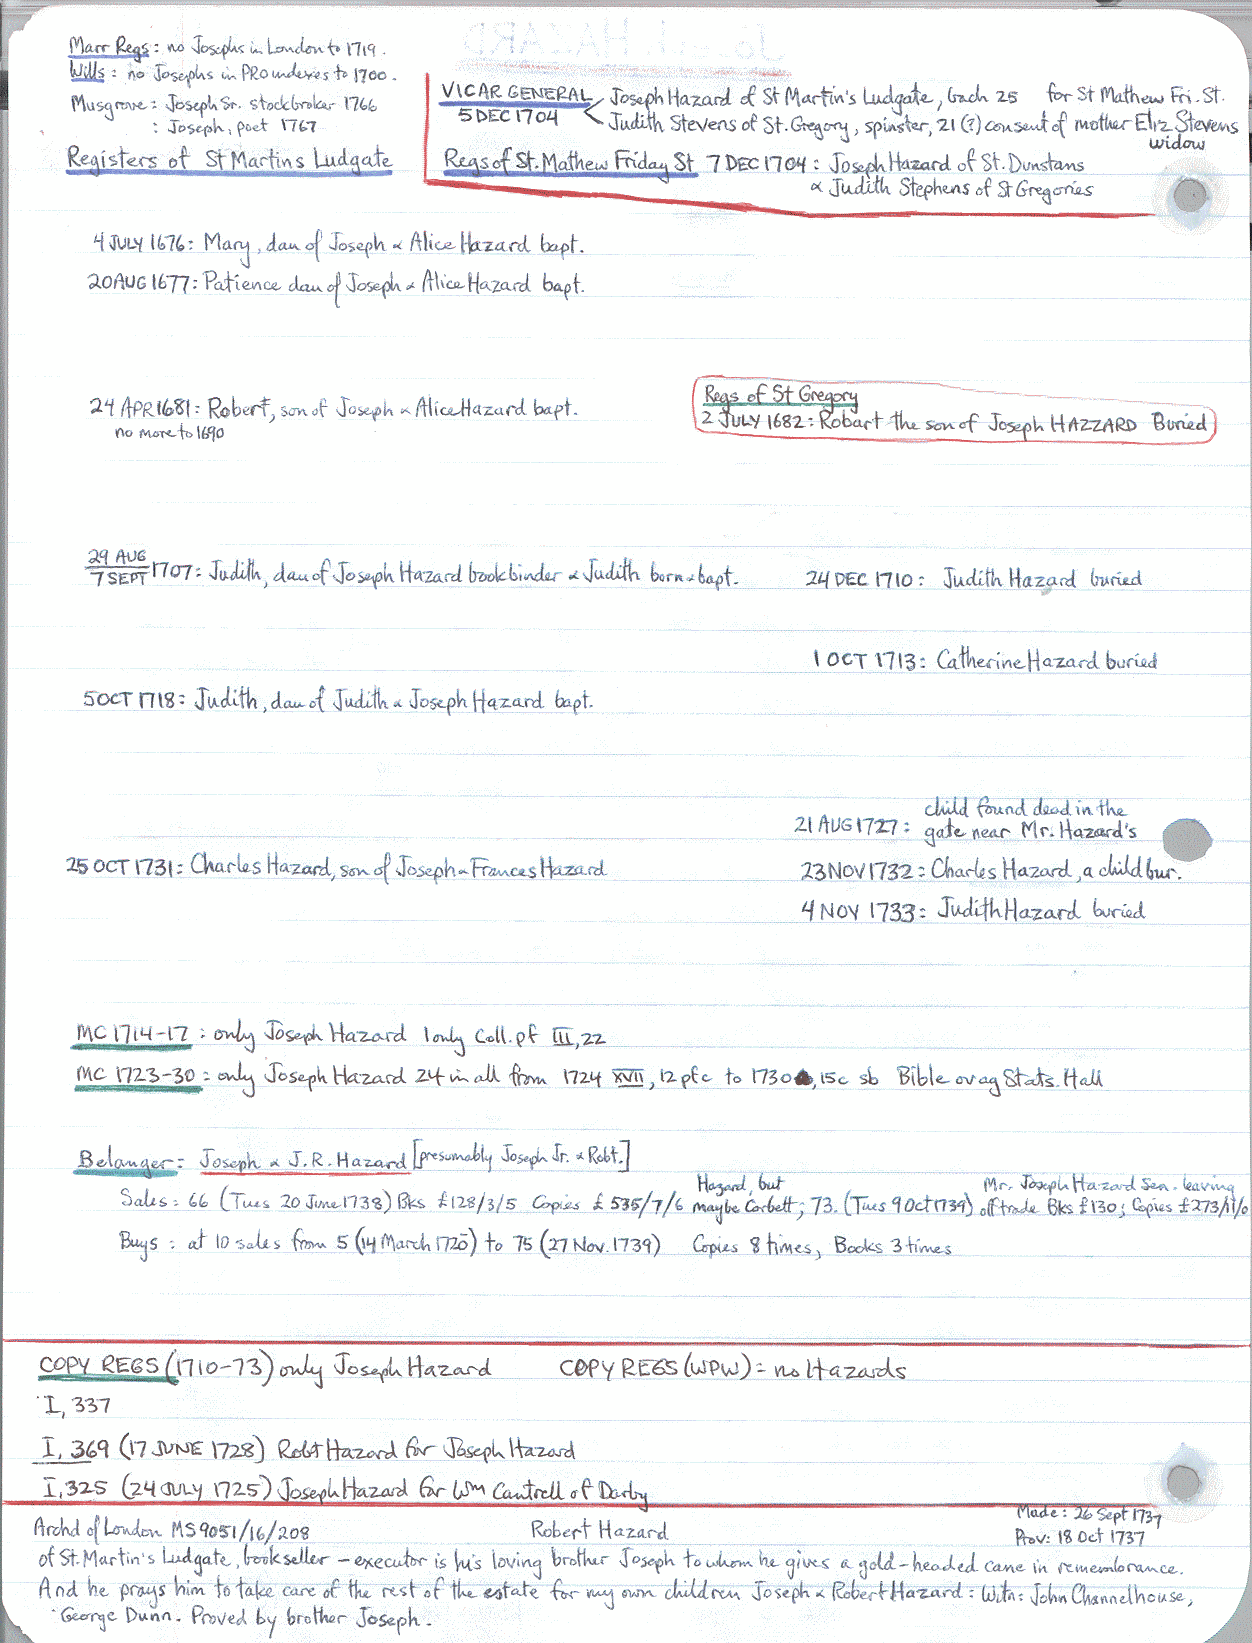 Marr Regs: no Josephs in London to 1719.
Wills: no Josephs in PRO indexes to 1700.
Musgrove: Joseph Sr. stockbroker 1766
: Joseph, poet 1767
Registers of St Martins Ludgate
VICAR GENERAL
5 DEC 1704
Joseph Hazard of St Martin's Ludgate, bach 25 for St Mathew Fri. St.
Judith Stevens of St. Gregory, spinster, 21 (?) consent of mother Eliz Stevens
widow
Regs of St. Mathew Friday St 7 DEC 1704: Joseph Hazard of St. Dunstans
& Judith Stephens of St Gregories
4 JULY 1676: Mary, dau of Joseph & Alice Hazard bapt.
20 AUG 1677: Patience dau of Joseph & Alice Hazard bapt.
24 APR 1681: Robert, son of Joseph & Alice Hazard bapt.
no more to 1690
Regs of St Gregory
2 JULY 1682: Robart the son of Joseph HAZZARD Buried
29 AUG
7 SEPT 1707: Judith, dau of Joseph Hazard bookbinder & Judith born & bapt.
24 DEC 1710: Judith Hazard buried
1 OCT 1713: Catherine Hazard buried
5 OCT 1718: Judith, dau of Judith & Joseph Hazard bapt.
21 AUG 1727: child found dead in the
gate near Mr. Hazard's
25 OCT 1731: Charles Hazard, son of Joseph & Frances Hazard
23 NOV 1732: Charles Hazard, a child bur.
4 NOV 1733: Judith Hazard buried
MC 1714-17: only Joseph Hazard 1 only Coll. pf III, 22
MC 1723-30: only Joseph Hazard 24 in all from 1724 XVII, 12 pfc to 1730, 15c sb Bible ov ag Stats. Hall
Belanger: Joseph & J. R. Hazard [presumably Joseph Jr. & Robt.]
Sales: 66 (Tues 20 June 1738) Bks £128/3/5 Copies £535/7/6 Hazard, but maybe Corbett; 73. (Tues 9 Oct 1739) Mr. Joseph Hazard Sen. leaving off trade Bks £130; Copies £273/11/0
Buys: at 10 sales from 5 (14 March 1720) to 75 (27 Nov. 1739) Copies 8 times, Books 3 times
COPY REGS (1710-73) only Joseph Hazard COPY REGS (WPW) = no Hazards
I, 337
I, 369 (17 JUNE 1728) Robt Hazard for Joseph Hazard
I, 325 (24 JULY 1725) Joseph Hazard for Wm Cantrell of Darby
Archd of London MS 9051/16/208 Robert Hazard
Made: 26 Sept 1737
Prov: 18 Oct 1737
of St. Martin's Ludgate, bookseller - executor is his loving brother Joseph to whom he gives a gold-headed cane in remembrance.
And he prays him to take care of the rest of the estate for my own children Joseph & Robert Hazard: Witn: John Channelhouse,
George Dunn. Proved by brother Joseph.